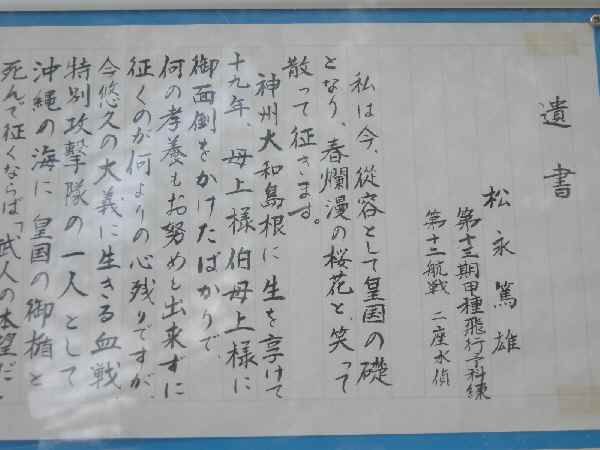 遺書
松永篤雄
第十三期甲種飛行予科練
第十二航戦 二座水偵
私は今、従容として皇国の礎
となり、春爛漫の桜花と、笑って
散って征きます。
神州大和島根に生を享けて
十九年、母上様伯母上様に
御面倒をかけたばかりで、
何の孝養もお努めも出来ずに
征くのが何よりの心残りですが、
今悠久の大義に生きる血戦、
特別攻撃隊の一人として
沖縄の海に皇国の御楯と
死んで征くならば「武人の本望だ